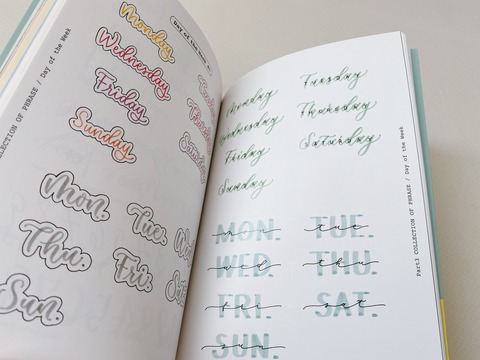 COLLECTION OF PHRASE / Day of the Week
Day of the Week
Monday
Wednesday
Friday
Sunday
Mon.
Tue.
Thu.
Fri.
Sun.
Monday Tuesday
Wednesday Thursday
Friday Saturday
Sunday
MON. TUE.
mon tue
WED. THU.
wed thu
FRI. SAT.
fri sat
SUN.
sun
Part3 COLLECTION OF PHRASE / Day of the Week